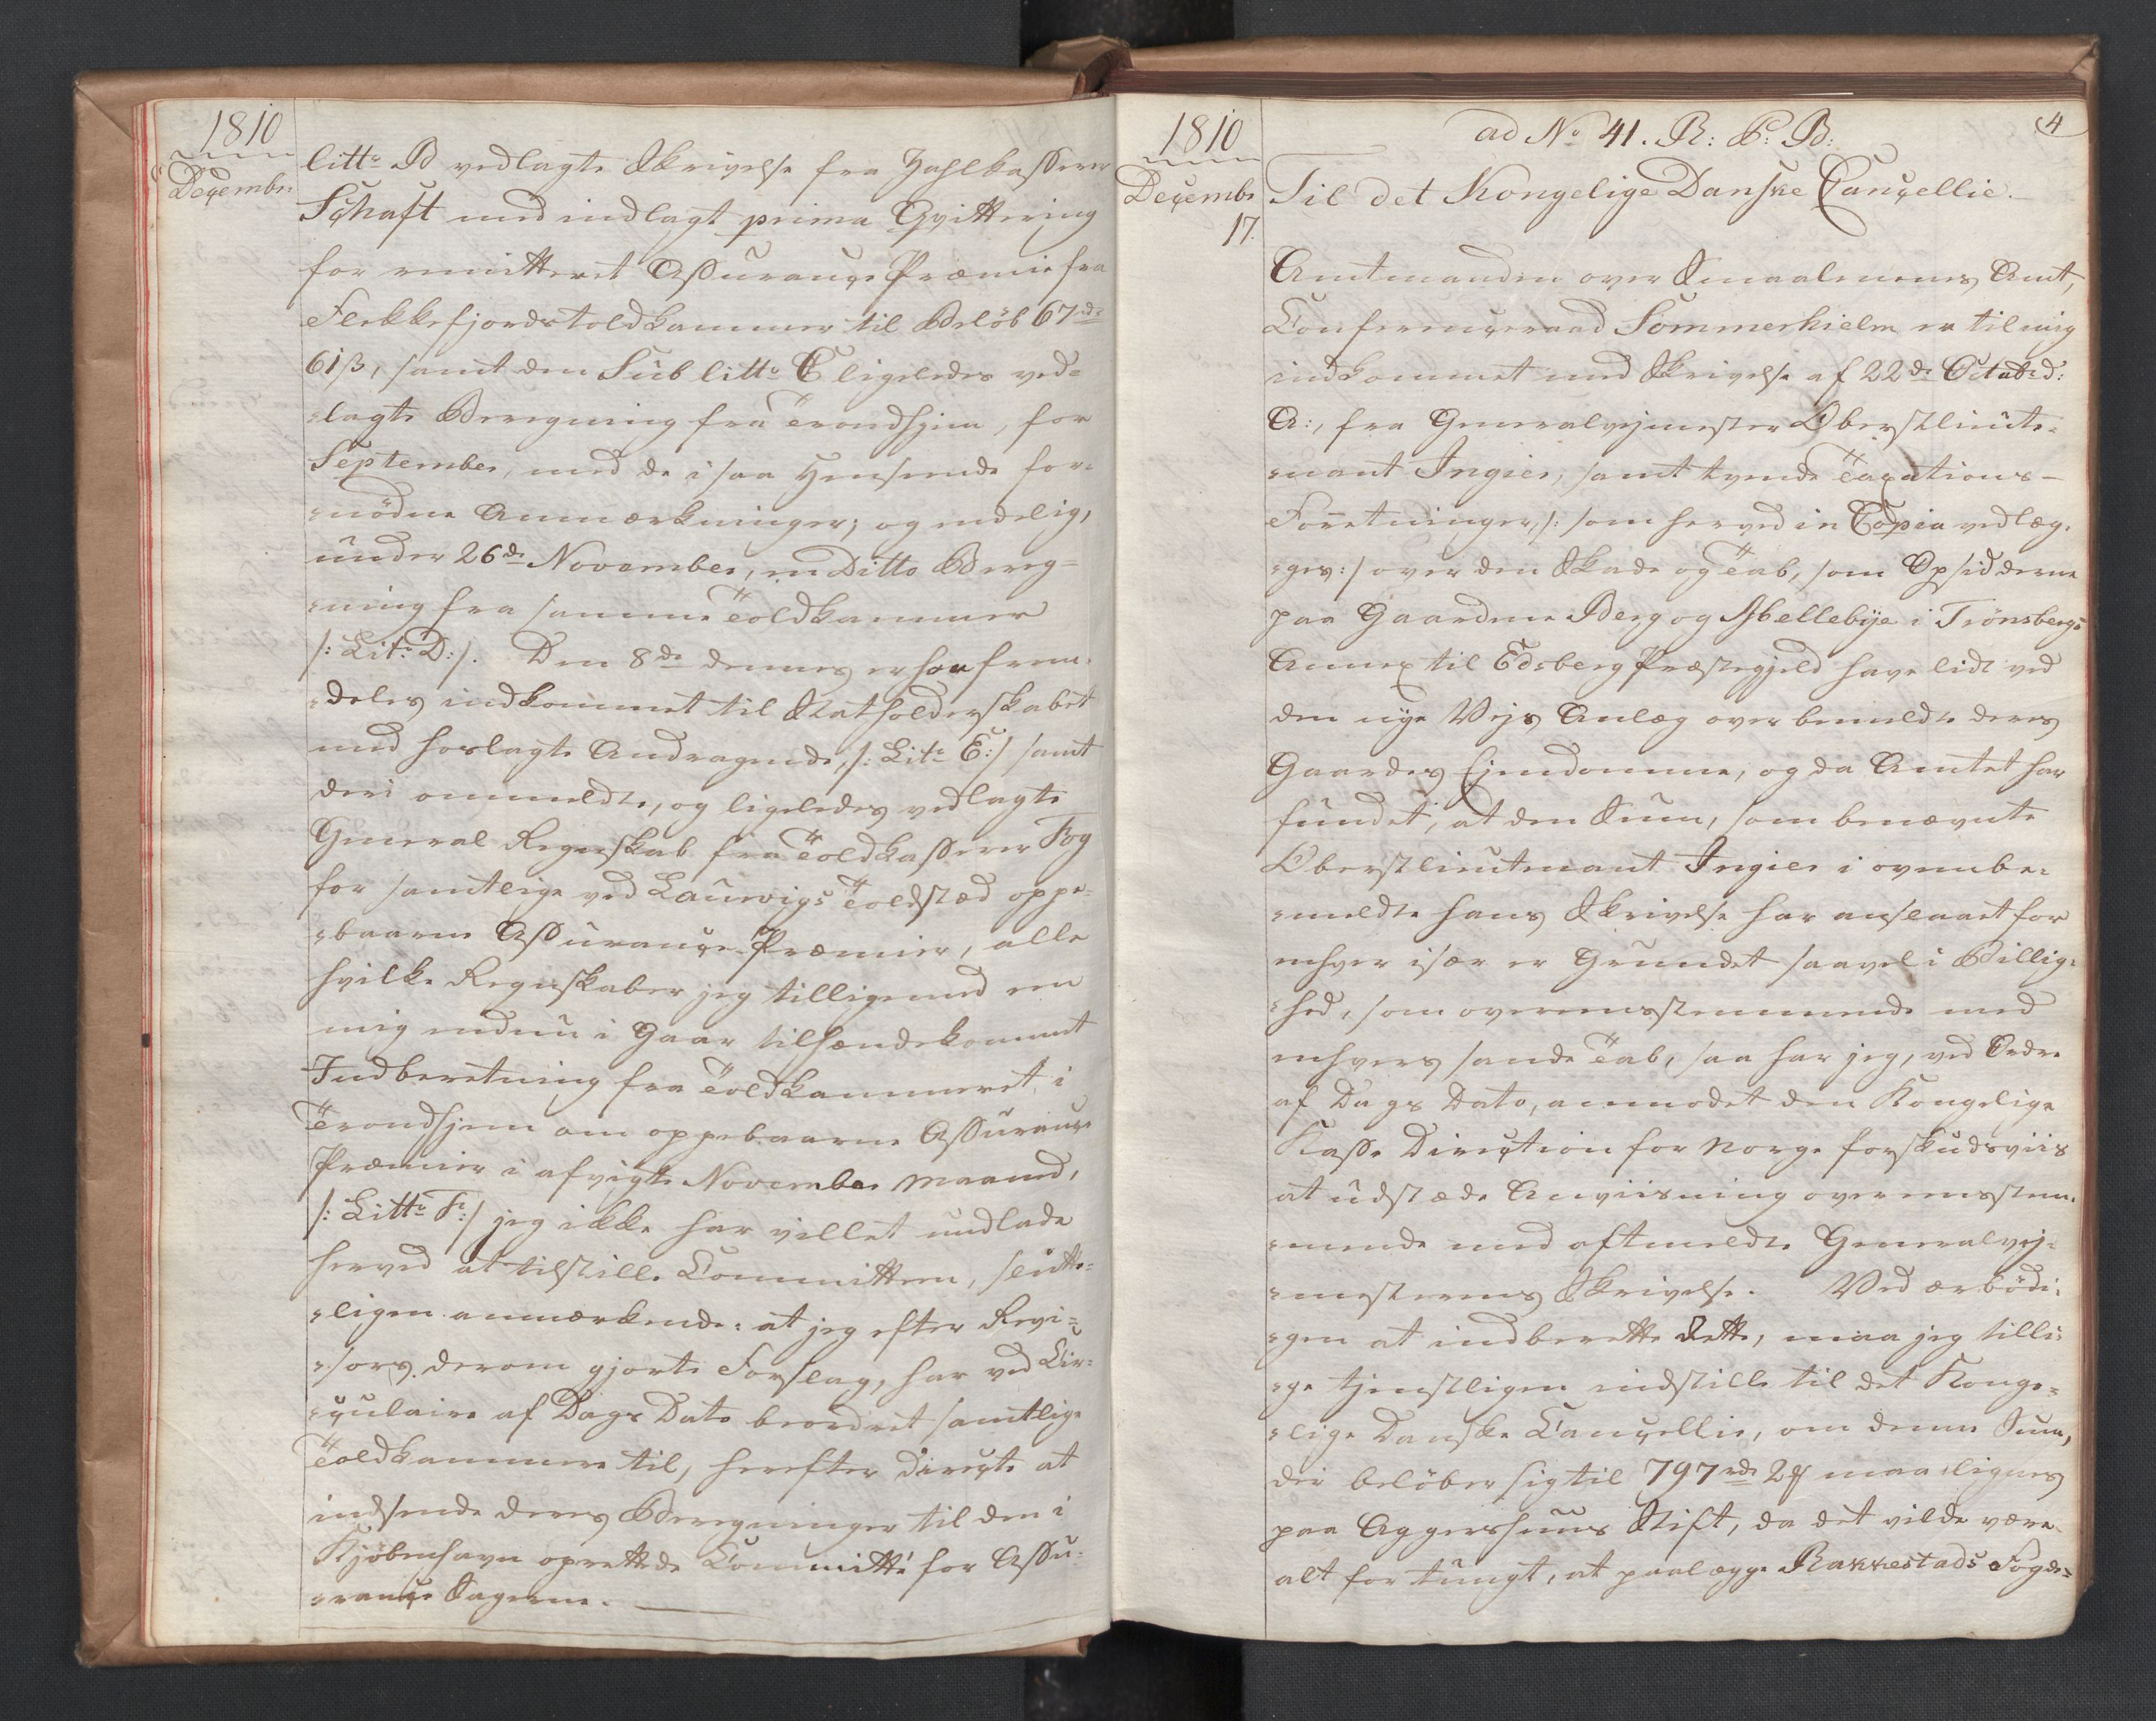 1810
Decembr:
litt. B vedlagte Skrivelse fra Zahlkasserer
Schaft med indlagt prima Qvittering
for remitteret Assurance Præmie fra
Flekkefjords toldkammer til Beløb 67rd:
61ß, samt den Sub litt. C ligeledes ved=
=lagte Beregning fra Trondhjem, for
September, med de i saa Henseende for=
=nødne Anmærkninger; og endelig,
under 26de November, en Ditto Bereg=
=ning fra samme Toldkammer
/: Lit. D:/. Den 8de dennes er han frem=
=deles indkommet til Statholderskabet
med hoslagte Andragende, /: Lit. E:/ samt
deri ommeldte, og ligeledes vedlagte
General Regnskab fra Toldkasserer Fog
for samtlige ved Laurvigs Toldsted oppe=
=baarne Assurance-Præmier, alle
hvilke Regnskaber jeg tilligemed en
mig endnu i Gaar tilhændekommet
Indberetning fra Toldkammeret i
Trondhjem om oppebaarne Assurance
Præmier i afvigte November Maaned,
/: Litt. F:/ jeg ikke har villet undlade
herved at tilstille Committeen, slutte=
=ligen anmærkende: at jeg efter Revi=
=sors derom gjorte Forslag, har ved Cir=
=culaire af Dags Dato beordret samtlige
Toldkammere til, herefter directe at
indsende deres Beregninger til den i
Kjøbenhavn oprettede Committé for Assu=
=rance Sagerne.
1810
Decembr
17.
4
ad No 41. R: P: B:
Til det Kongelige Danske Cancellie.
Amtmanden over Smaalenenes Amt,
Conferenceraad Sommerhielm er til mig
indkommet med Skrivelse af 22de Octobr d:
A:, fra Generalvejmester Oberstlieute=
=nant Ingier, samt tvende Taxations-
Forretninger, /: som herved in Copia vedlæg=
=ges:/ over den Skade og Tab, som Opsidderne
paa Gaardene Berg og Mellebye i Trønsbergs
Annex til Edsberg Præstegjeld have lidt ved
den nye Vejs Anlæg over bemeldte deres
Gaardes Ejendomme, og da Amtet har
fundet, at den Sum, som benævnte
Oberstlieutenant Ingier i ovenbe=
=meldte hans Skrivelse har anslaaet for
enhver især er Grundet saavel i Billig=
=hed, som overeensstemmende med
enhvers sande Tab, saa har jeg, ved Ordre
af Dags Dato, anmodet den Kongelige
Kasse Direction for Norge forskudsviis
at udstæde Anviisning overeensstem=
=mende med oftmeldte Generalvej=
=mesterens Skrivelse. Ved ærbødi=
=gen at indberette dette, maa jeg tilli=
=ge tjenstligen indstille til det Konge=
=lige Danske Cancellie, om denne Sum,
der beløber sig til 797rd 2# maa lignes
paa Aggershuus Stift, da det vilde være
alt for tungt, at paalægge Rakkestads Fogde=